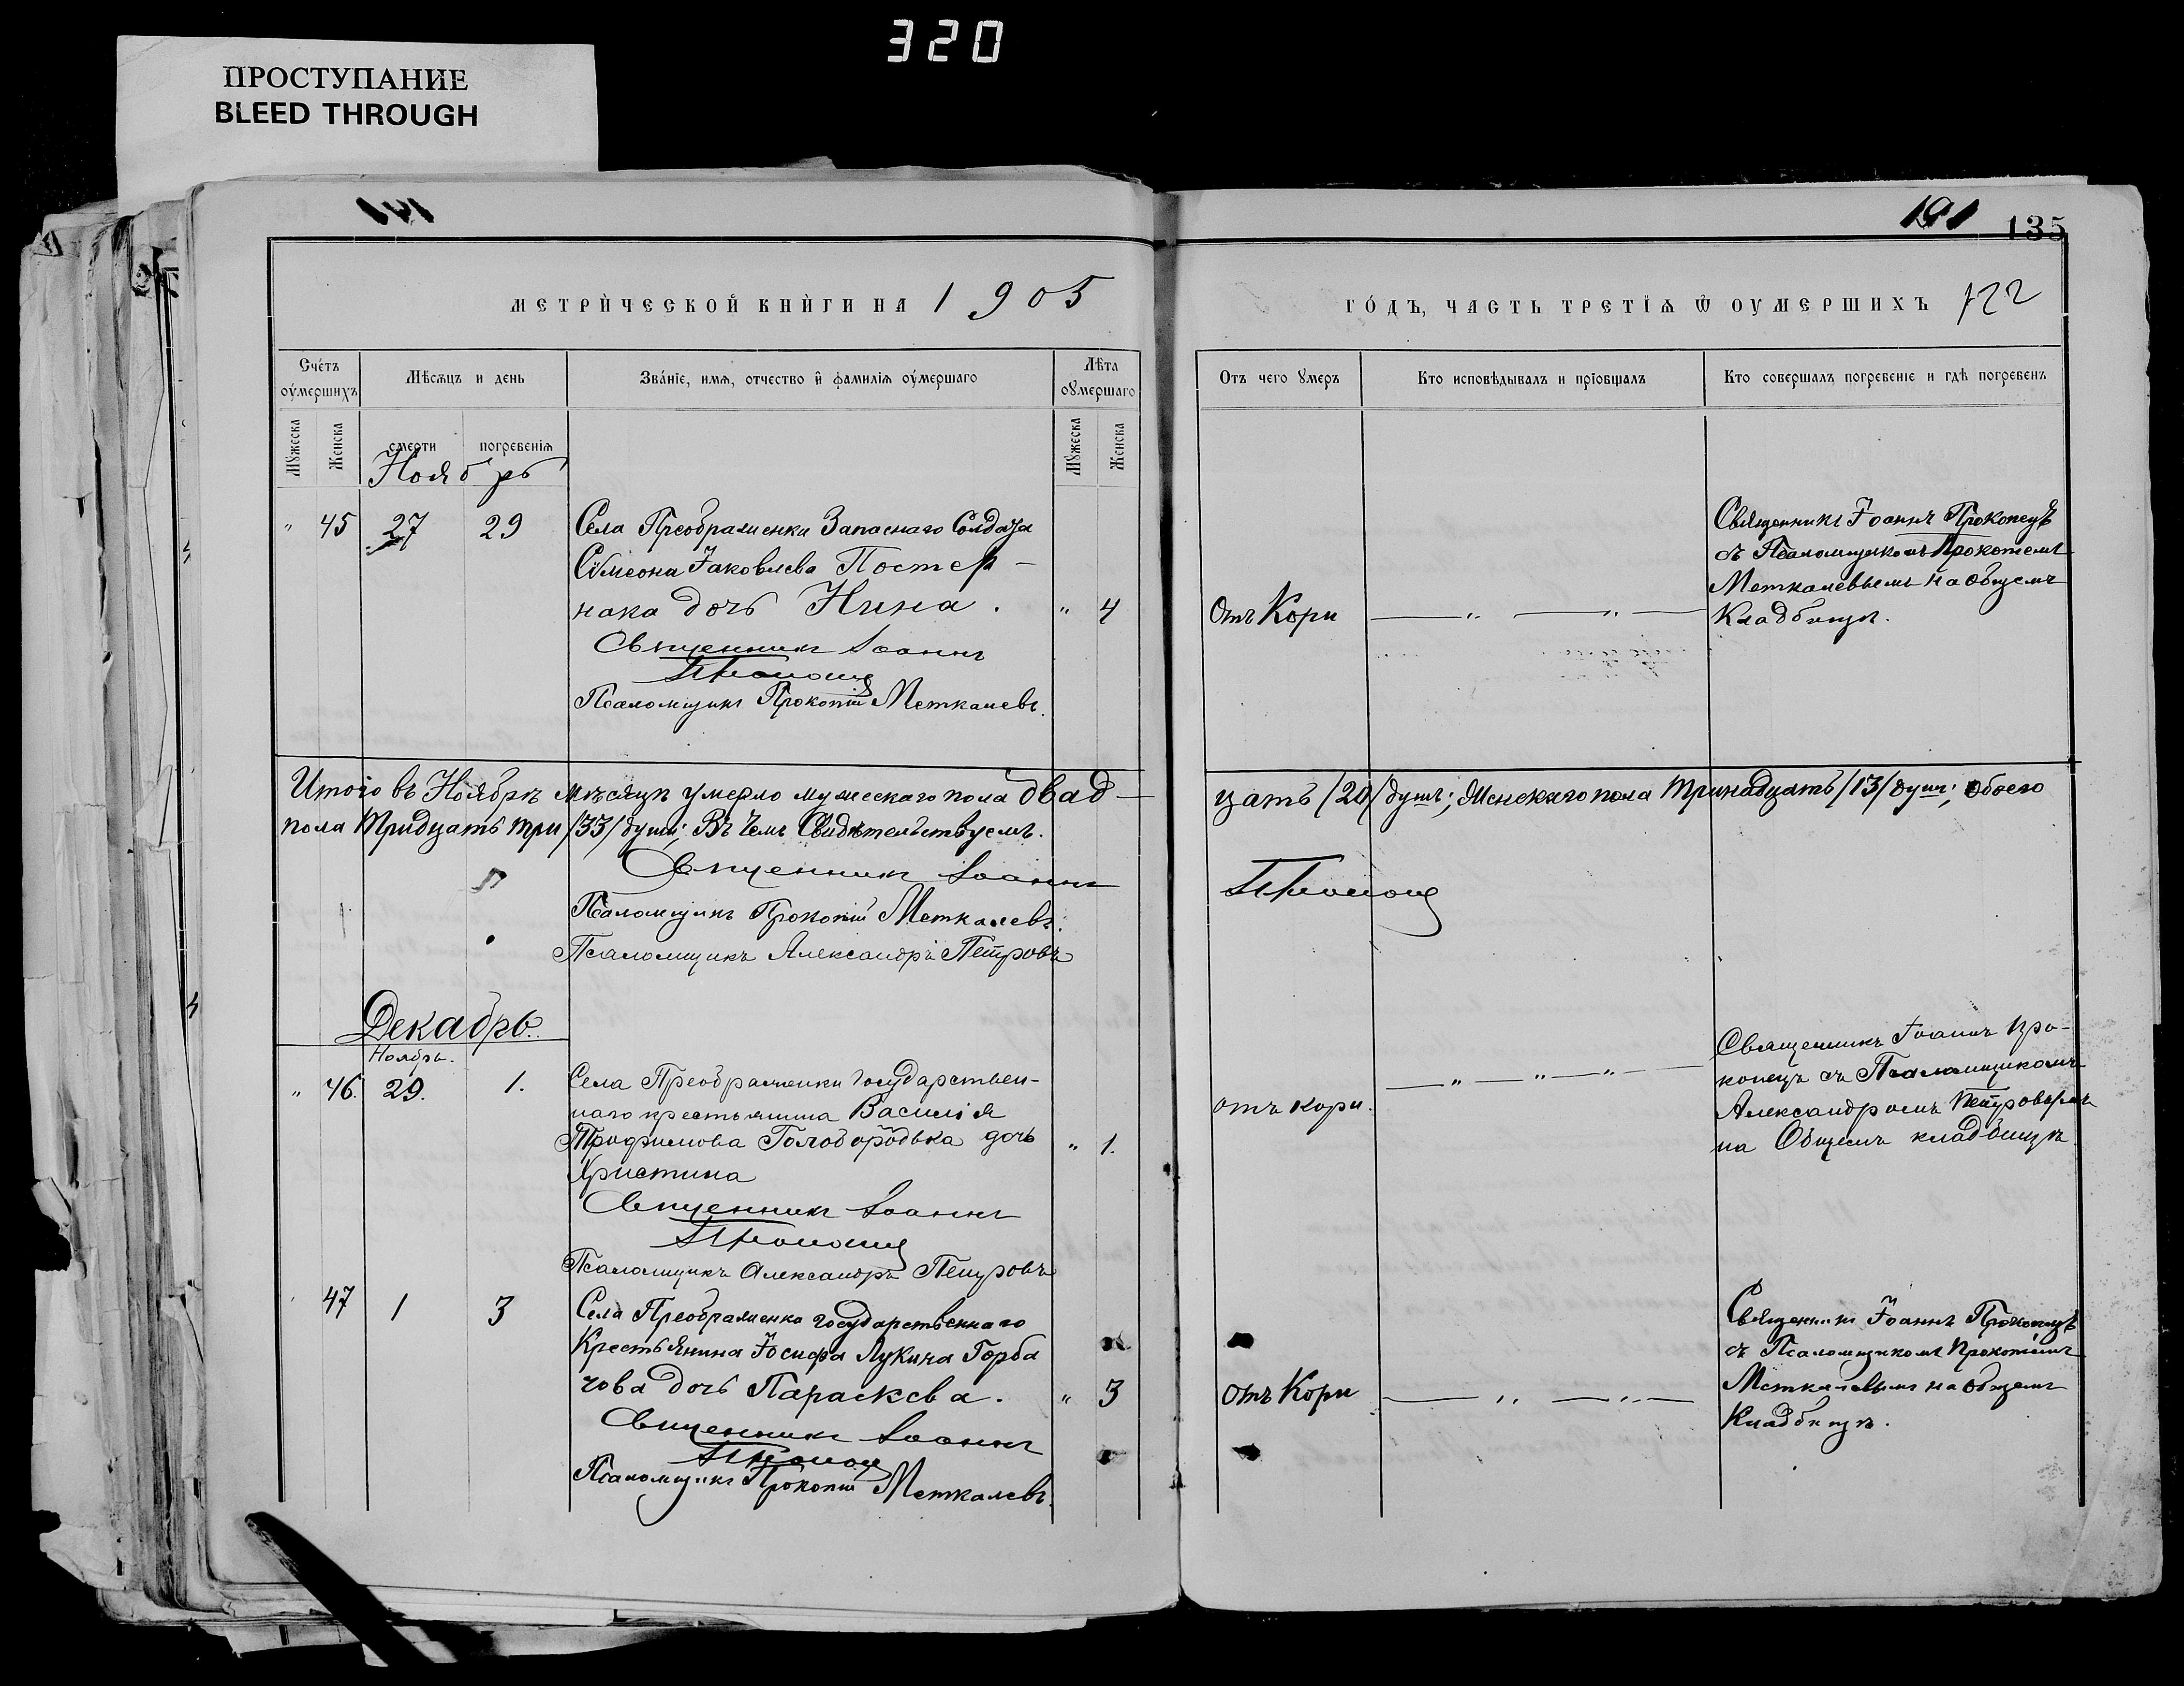 320
ПРОСТУПАНИЕ
BLEED THROUGH
191 135
МЕТРИ́ЧЕСКОЙ КНИ́ГИ НА 1905
ГО́ДЪ, ЧАСТЬ ТРЕТІѦ Ѿ ОУМЕРШИХЪ 122
Сче́тъ оу́мершихъ
Мѣсѧцъ и день
Зва́ніе, имѧ, отчество и̂ фамиліѧ оу́мершаго
Лѣта оу́мершаго
Отъ чего ꙋмеръ
Кто исповѣдывалъ и пріобщалъ
Кто совершалъ погребеніе и гдѣ погребенъ
Мꙋжеска Женска смерти погребеніѧ Мꙋжеска Женска
Ноябрь
" 45 27 29 Села Преображенки Запаснаго Солдата
Сѵмеона Іаковлева Постер-
нака дочь Нина. " 4
Священникъ Іоаннъ
Прокопец
Псаломщикъ Прокопій Меткалевъ.
Отъ Кори
Священникъ Іоаннъ Прокопецъ
съ Псаломщикомъ Прокопіемъ
Меткалевымъ на общемъ
Кладбищѣ.
Итого въ Ноябрѣ мѣсяцѣ умерло мужескаго пола двад-
цать /20/ душъ; Женскаго пола тринадцать /13/ душъ; обоего
пола тридцать три /33/ души; Въ чемъ Свидѣтельствуемъ.
Священник Іоаннъ
Прокопец
Псаломщикъ Прокопій Меткалевъ.
Псаломщикъ Александръ Петровъ
Декабрь.
Ноябрь.
" 46. 29. 1. Села Преображенки Государствен-
наго крестьянина Василія
Трофимова Голобородька дочь " 1.
Христина
Священник Іоаннъ
Прокопец
Псаломщикъ Александръ Петровъ
отъ кори.
Священникъ Іоаннъ Про-
копецъ съ Псаломщикомъ
Александромъ Петровымъ
на Общемъ кладбищѣ
47 1 3 Села Преображенка государственнаго
Крестьянина Іосифа Лукича Горба
чова дочь Параскева. " 3
Священник Іоаннъ
Прокопец
Псаломщикъ Прокопій Меткалевъ.
отъ Кори
Священникъ Іоаннъ Прокопецъ
съ Псаломщикомъ Прокопіемъ
Меткалевымъ на общемъ
Кладбищѣ.